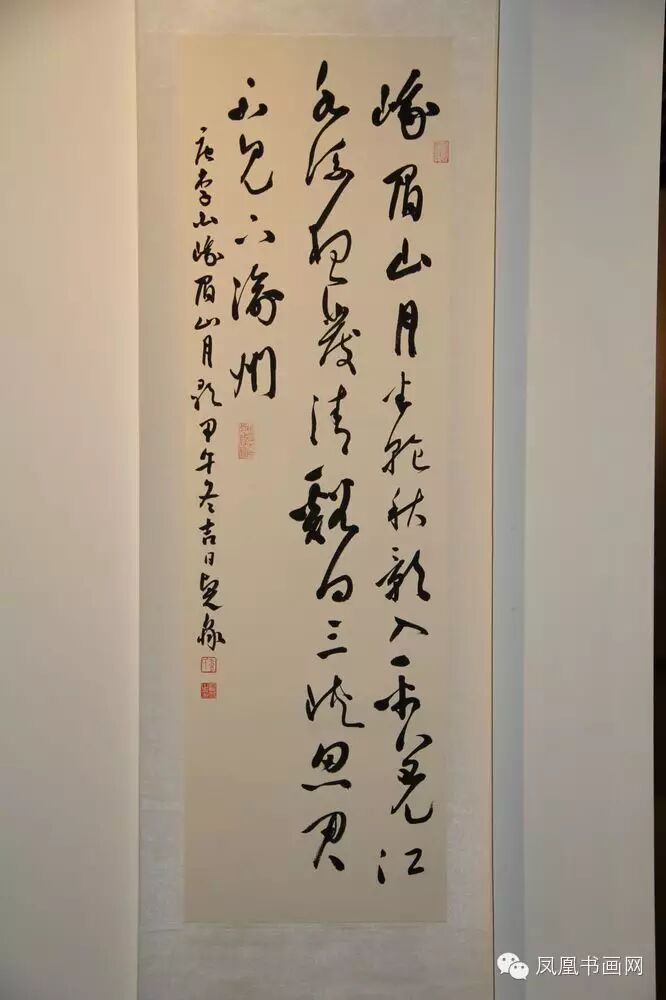 峨眉山月半轮秋影入平羌江
水流夜發清谿向三峡思君
不见下渝州
唐李白峨眉山月歌甲午冬吉日
凤凰书画网